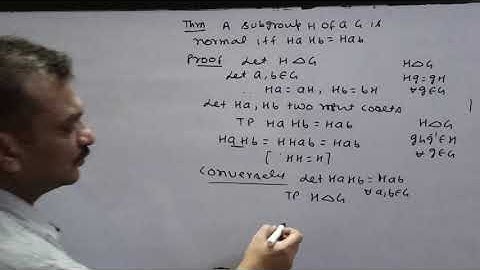 Thm A subgroup H of a G is
normal iff Ha Hb = Hab
Proof Let H △ G
Let a, b ∈ G
Ha = aH, Hb = bH
Let Ha, Hb two right cosets
TP Ha Hb = Hab
Ha Hb = HHab = Hab
[ HH = H ]
H △ G
Hg = gH
∀ g ∈ G
H △ G
ghg⁻¹ ∈ H
∀ g ∈ G
Conversely Let Ha Hb = Hab
∀ a, b ∈ G
TP H △ G